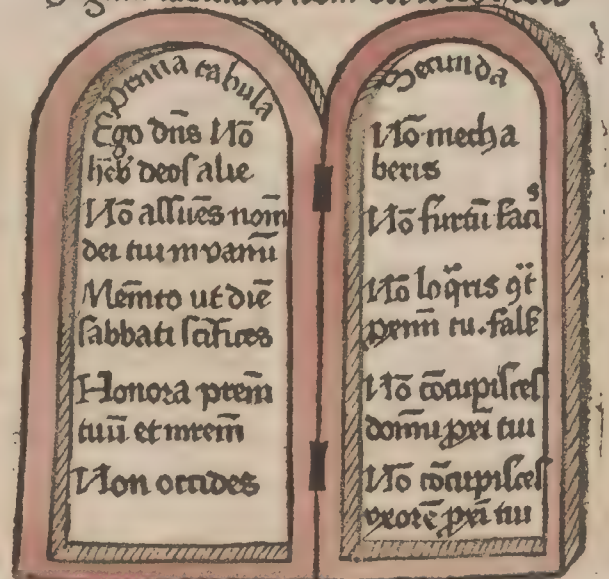 Prima tabula
Ego dn̄s Nō
hēb deos alie
Nō assūes nom̄
dei tui in vanū
Mem̄to ut diē
sabbati sc̄ifices
Honora prem̄
tuū et mrem̄
Non occides
Secunda
Nō mecha
beris
Nō furtū facis
Nō loq̄ris ꝯt̄
ꝓxim̄ tu. fals̄
Nō cōcupisces
domū ꝓxi tui
Nō cōcupisces
vxorē ꝓxi tui